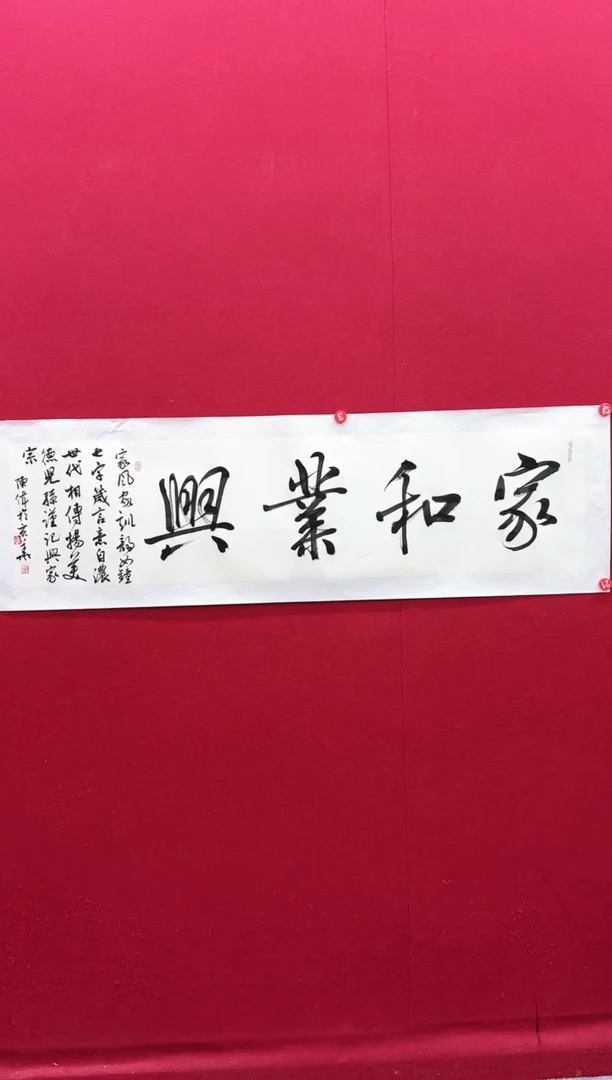 家和業興
家风家訓韵如鐘
七字箴言意自濃
世代相傳揚美
德児孫謹記興家
宗
陳偉於京華